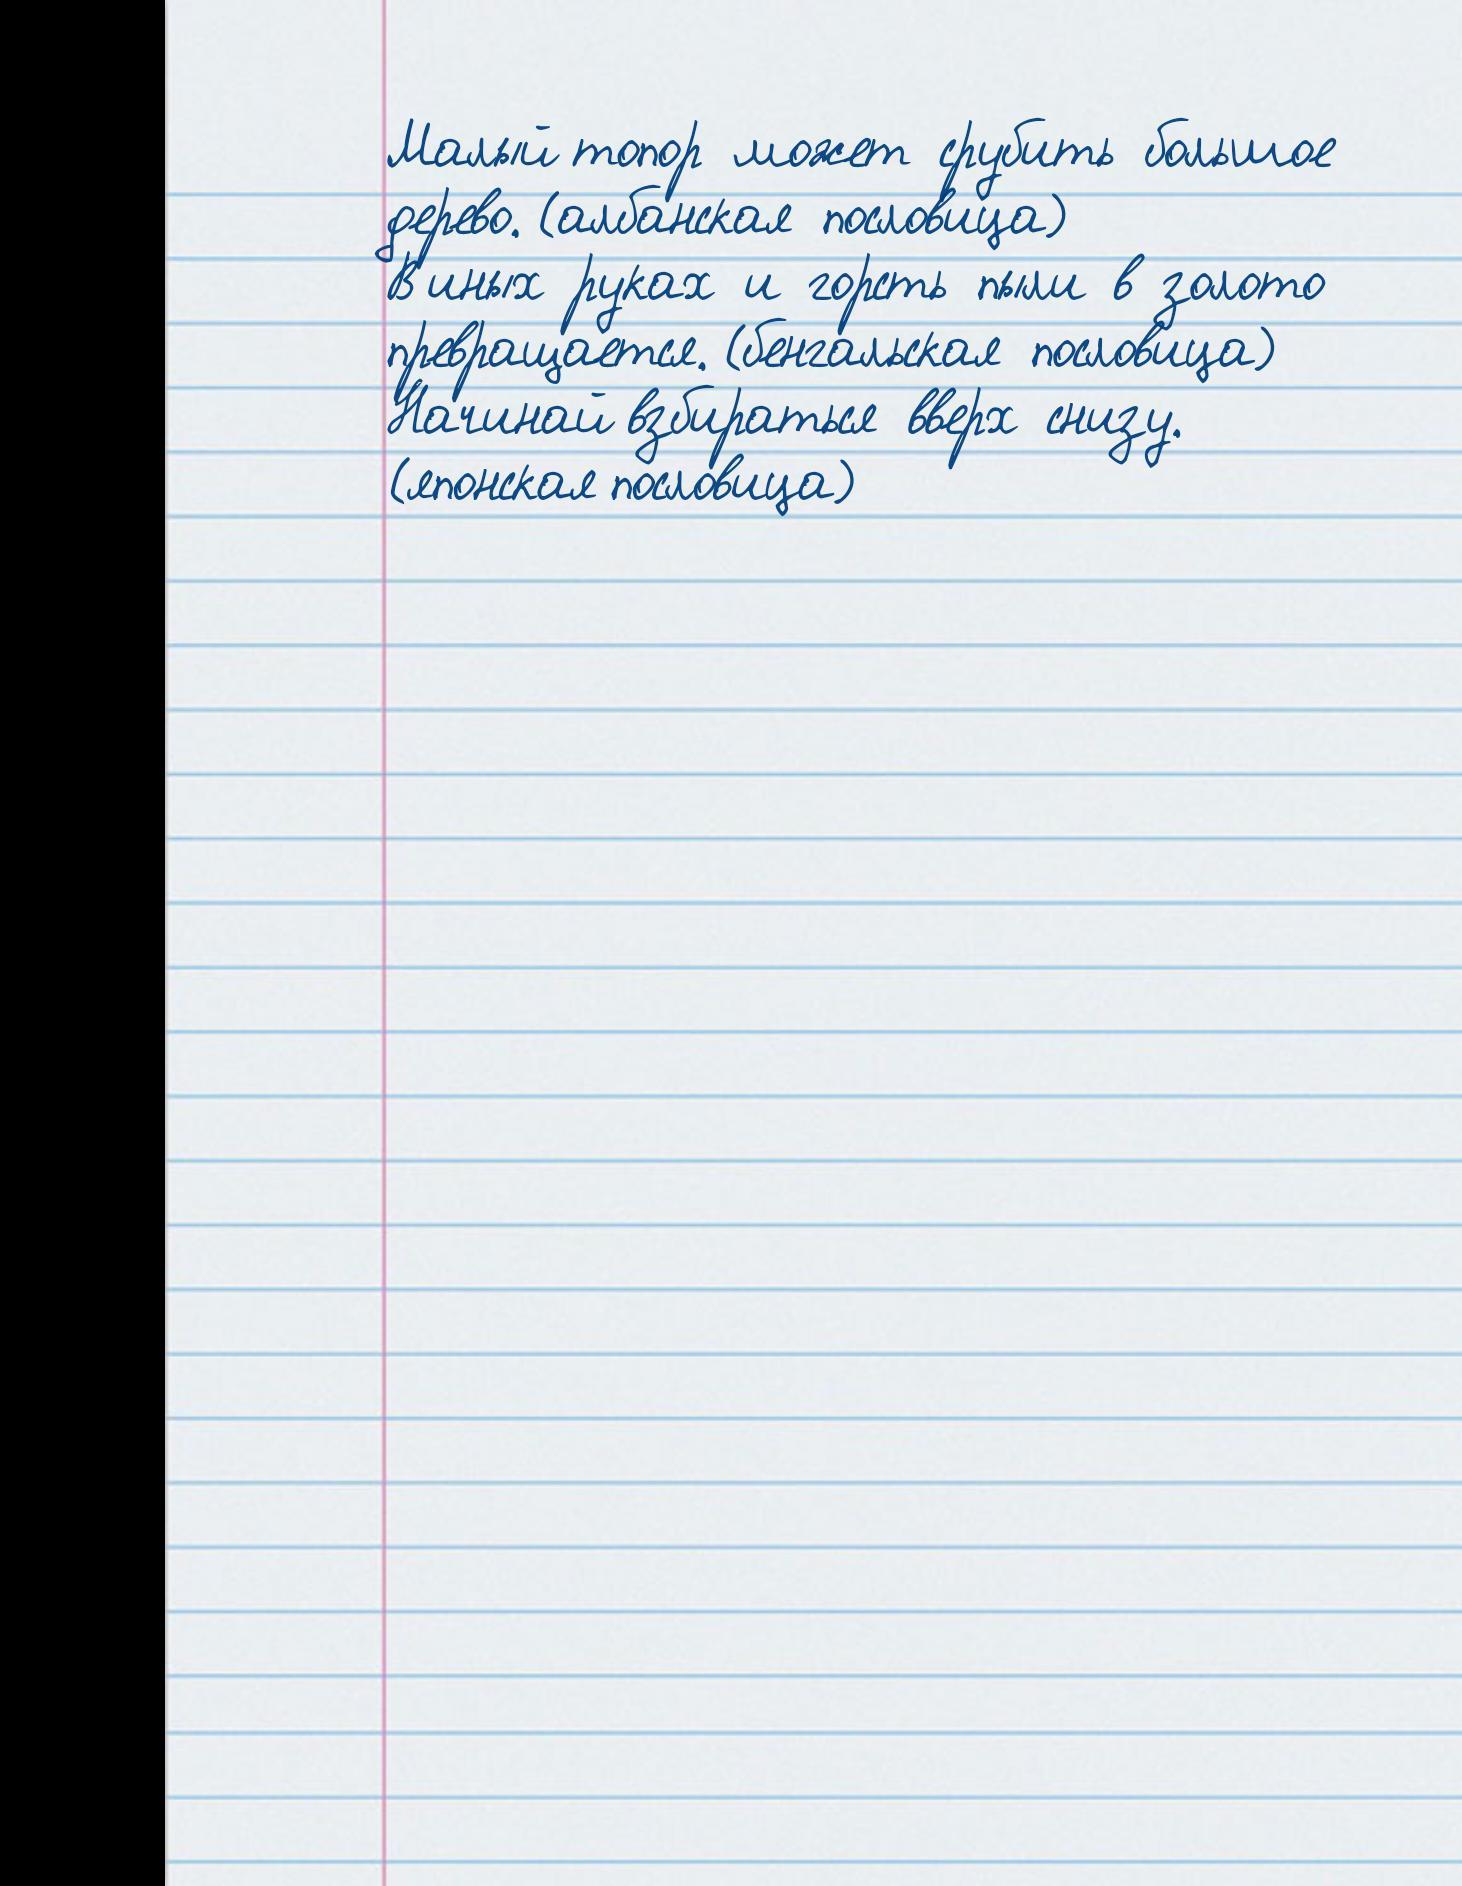 Малый топор может срубить большое
дерево. (албанская пословица)
В иных руках и горсть пыли в золото
превращается. (бенгальская пословица)
Начинай взбираться вверх снизу.
(японская пословица)